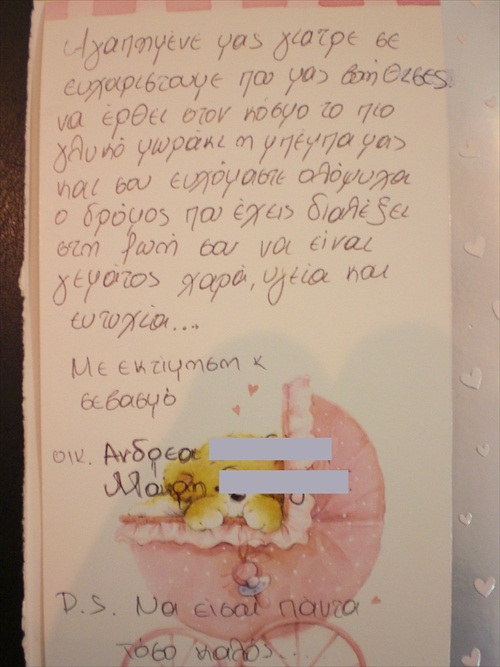 Αγαπημένε μας γιατρε σε
ευχαριστουμε που μας βοήθησες
να έρθει στον κόσμο το πιο
γλυκό μωράκι η μπέμπα μας
και σου ευχόμαστε ολόψυχα
ο δρόμος που έχεις διαλέξει
στη ζωή σου να είναι
γεμάτος χαρά, υγεία και
ευτυχία...
Με εκτίμηση κ
σεβασμό
οικ. Ανδρεα
Μαίρη
D.S. Να είσαι πάντα
τόσο καλός...